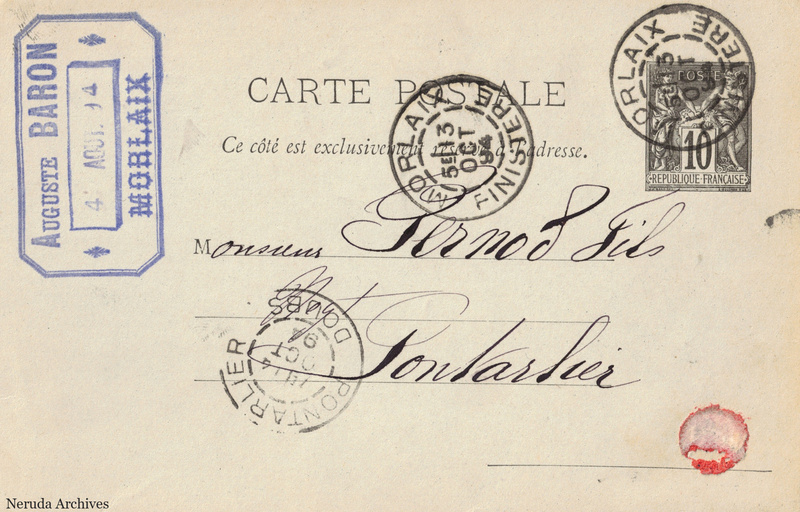 Auguste BARON
AOUT. 94
MORLAIX
CARTE POSTALE
Ce côté est exclusivement réservé à l'adresse.
MORLAIX
5E 13
OCT
94
FINISTERE
MORLAIX
5E 13
OCT
FINISTERE
POSTE
10
REPUBLIQUE FRANÇAISE
Monsieur Pernod Fils
Pontarlier
PONTARLIER
14
OCT
94
DOUBS
Neruda Archives